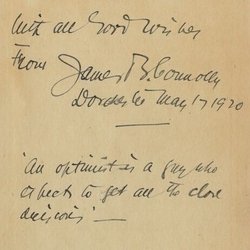 With all Good Wishes
From
James B. Connolly
Dorchester May 17 1920
"An optimist is a guy who
expects to get all the close
decisions" —